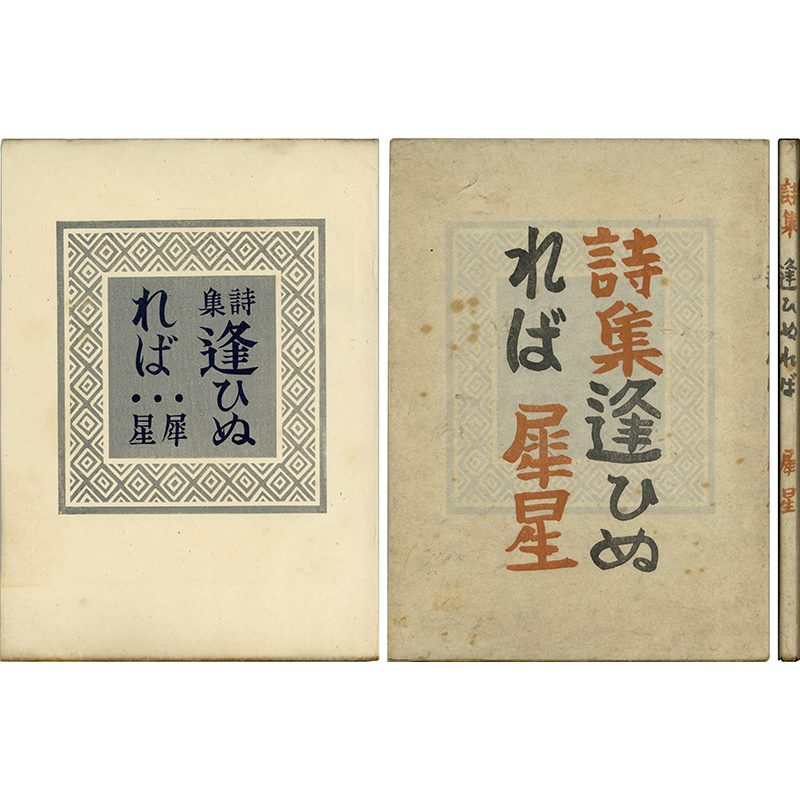 詩集
逢ひぬ
れば・・・
犀星
詩集逢ひぬ
れば 犀星
詩集 逢ひぬれば 犀星